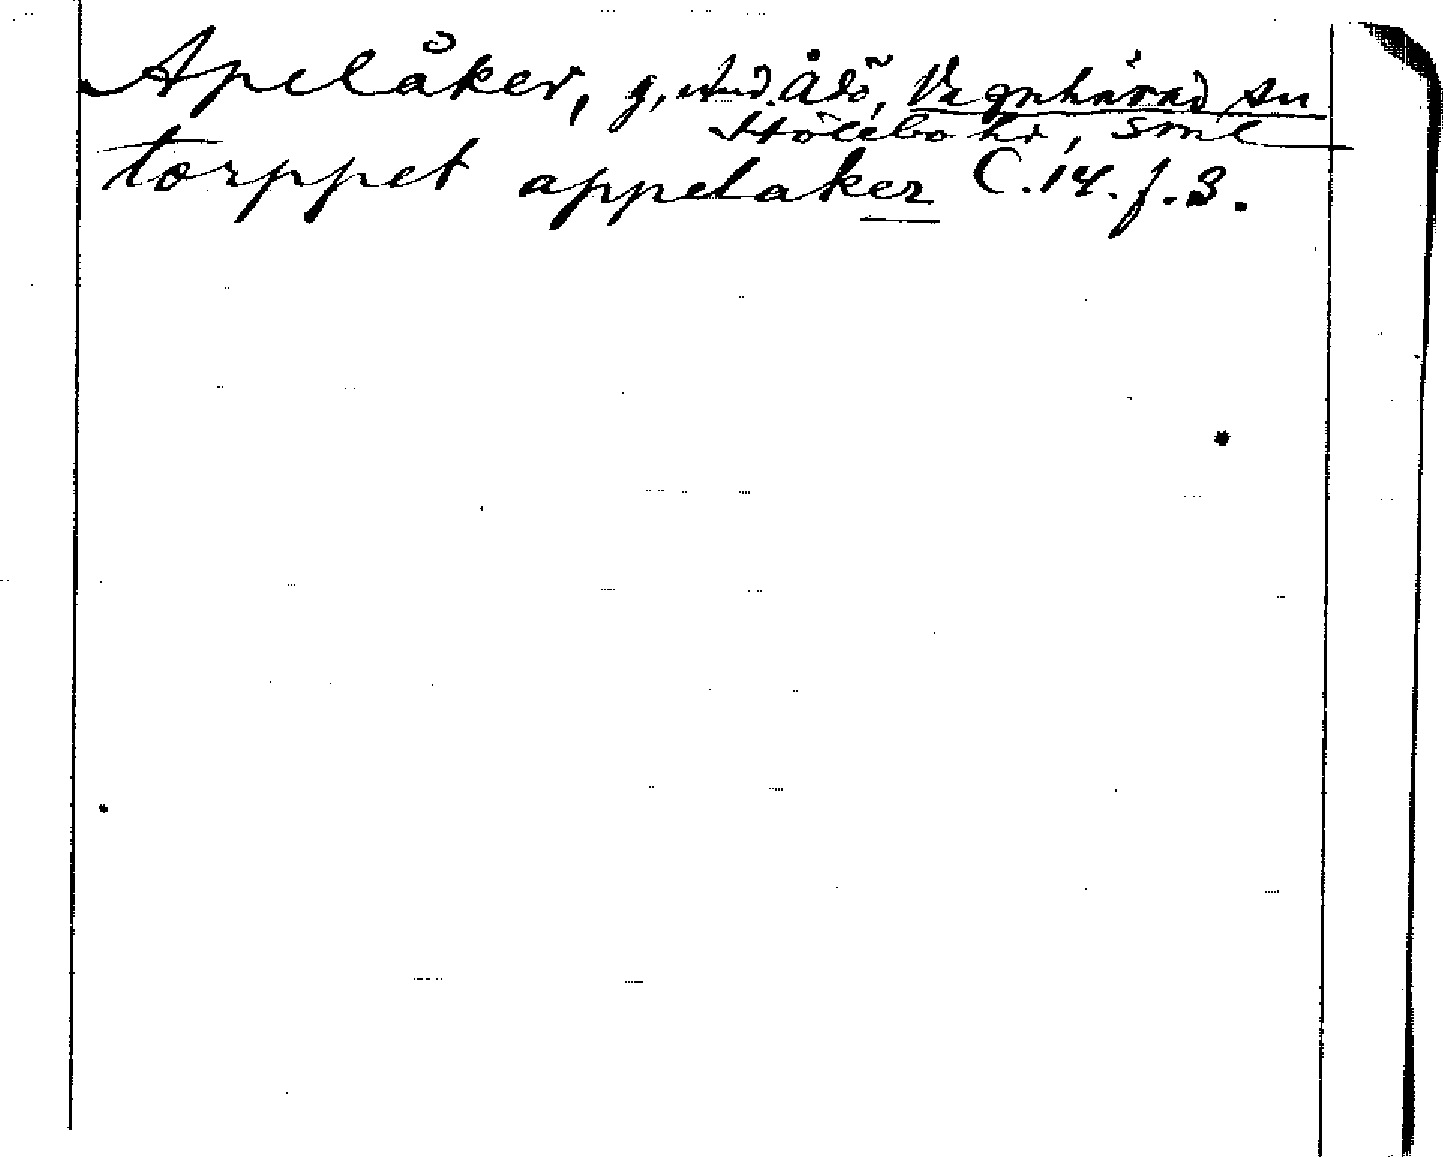 Apelåker, g, und. Ålö, Vagnhärad sn
Hölebo hd, Sml
torppet appelaker C. 14. f. 3.